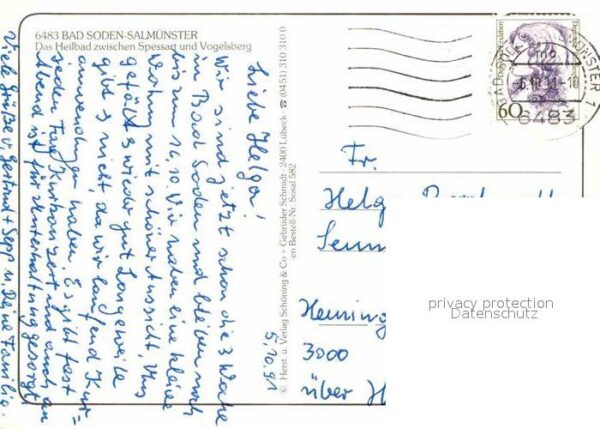 6483 BAD SODEN-SALMÜNSTER
Das Heilbad zwischen Spessart und Vogelsberg
5.10.91
Liebe Helga!
Wir sind jetzt schon die 3 Woche
in Bad Soden und bleiben noch
bis zum 16.10. Wir haben eine kleine
Wohnung mit schöner Aussicht, Uns
gefällt's wieder gut Langeweile
gibt's nicht, da wir laufend Kur=
anwendungen haben. Es gibt fast
jeden Tag Kurkonzert und auch am
Abend ist für Unterhaltung gesorgt.
Viele Grüße v. Gertrud + Sepp u. Deine Familie.
© Herst. u. Verlag Schöning & Co + Gebrüder Schmidt · 2400 Lübeck · ☎ (0451) 310 310 0
en Bestell-Nr. Sosal 582
60
BAD SODEN
MÜNSTER 1
6483
Fr.
Helg
Henning
3000
über H
privacy protection
Datenschutz